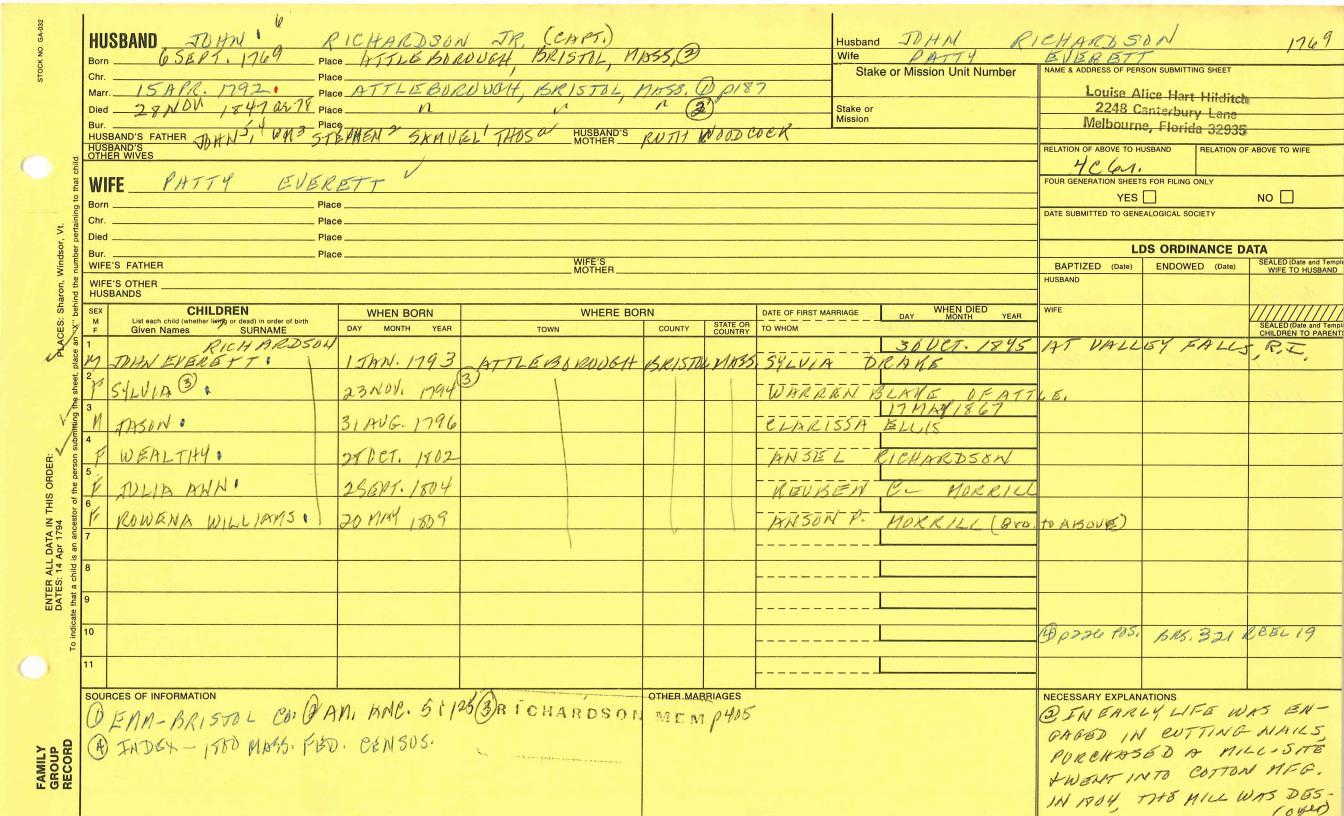 STOCK NO. GA-032
HUSBAND JOHN 6 RICHARDSON JR. (CAPT.)
Born 6 SEPT. 1769 Place ATTLEBOROUGH, BRISTOL, MASS, (3)
Chr. Place
Marr. 15 APR. 1792. Place ATTLEBOROUGH, BRISTOL, MASS. (1) p187
Died 28 NOV 1847 Place " " " (2)
Bur. Place
HUSBAND'S FATHER JOHN5, 4 WM3 STEPHEN2 SAMUEL1 THOS HUSBAND'S MOTHER RUTH WOODCOCK
HUSBAND'S OTHER WIVES
Husband JOHN RICHARDSON 1769
Wife PATTY EVERETT
Stake or Mission Unit Number
Stake or Mission
NAME & ADDRESS OF PERSON SUBMITTING SHEET
Louise Alice Hart Hilditch
2248 Canterbury Lane
Melbourne, Florida 32935
RELATION OF ABOVE TO HUSBAND RELATION OF ABOVE TO WIFE
FOUR GENERATION SHEETS FOR FILING ONLY
YES NO
DATE SUBMITTED TO GENEALOGICAL SOCIETY
WIFE PATTY EVERETT ✓
Born Place
Chr. Place
Died Place
Bur. Place
WIFE'S FATHER WIFE'S MOTHER
WIFE'S OTHER HUSBANDS
LDS ORDINANCE DATA
BAPTIZED (Date) ENDOWED (Date) SEALED (Date and Temple) WIFE TO HUSBAND
HUSBAND
WIFE
SEALED (Date and Temple) CHILDREN TO PARENTS
SEX M F
CHILDREN
List each child (whether living or dead) in order of birth
Given Names SURNAME
WHEN BORN
DAY MONTH YEAR
WHERE BORN
TOWN COUNTY STATE OR COUNTRY
DATE OF FIRST MARRIAGE
TO WHOM
WHEN DIED
DAY MONTH YEAR
1 RICHARDSON 30 OCT. 1845 AT VALLEY FALLS, R.I.
M JOHN EVERETT 1 JAN. 1793 ATTLEBOROUGH BRISTOL MASS. SYLVIA DRAKE
2 F SYLVIA (3) 23 NOV. 1794 (3) WARREN BLAKE OF ATTLE.
3 17 MAY 1867
M JASON 31 AUG. 1796 CLARISSA ELLIS
4 F WEALTHY 28 OCT. 1802 ANSEL RICHARDSON
5 F JULIA ANN 2 SEPT. 1804 REUBEN C. MORRILL
6 F ROWENA WILLIAMS 20 MAY 1809 ANSON P. MORRILL (Bro. to ABOVE)
7
8
9
10 (4) p226 POS. BRG. 321 REEL 19
11
SOURCES OF INFORMATION
(1) EMM-BRISTOL CO. (2) AM. ANC. 5:125 (3) RICHARDSON MEM p405
(4) INDEX-1800 MASS. FED. CENSUS.
OTHER MARRIAGES
NECESSARY EXPLANATIONS
(2) IN EARLY LIFE WAS EN-
GAGED IN CUTTING NAILS,
PURCHASED A MILL-SITE
& WENT INTO COTTON MFG.
IN 1804, THE MILL WAS DES-
(over)
ENTER ALL DATA IN THIS ORDER:
DATES: 14 Apr 1794
PLACES: Sharon, Windsor, Vt.
To indicate that a child is an ancestor of the person submitting the sheet, place an "X" behind the number pertaining to that child
FAMILY
GROUP
RECORD